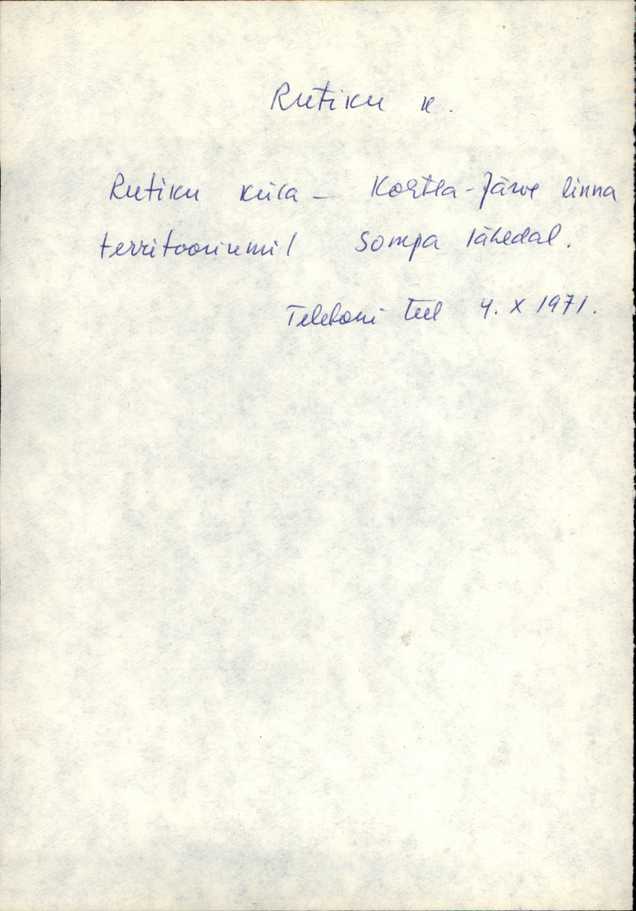 Rutiku k.
Rutiku küla – Kohtla-Järve linna
territooriumil Sompa lähedal.
Telefoni teel 4. X 1971.